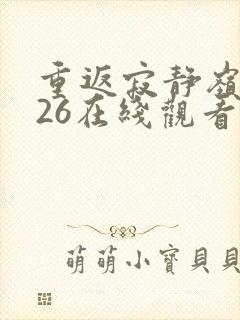 重返寂靜嶺
26在綫觀看
萌萌小寶貝貝